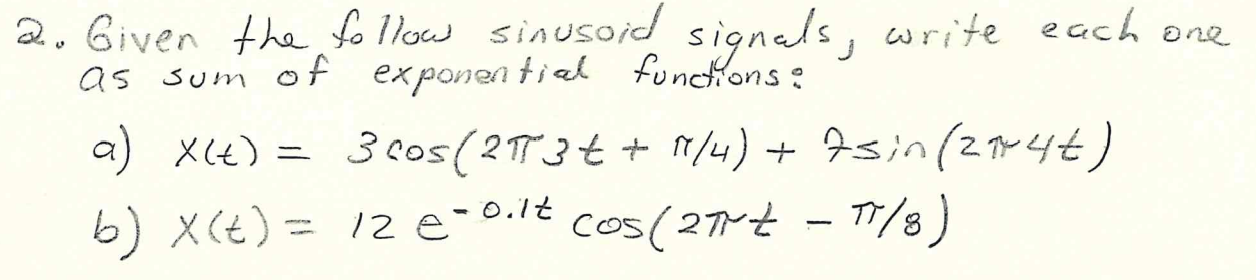 2. Given the follow sinusoid signals, write each one
as sum of exponential functions:
a) X(t) = 3 cos(2π3t + π/4) + 7sin(2π4t)
b) X(t) = 12 e^-0.1t cos(2πt - π/8)